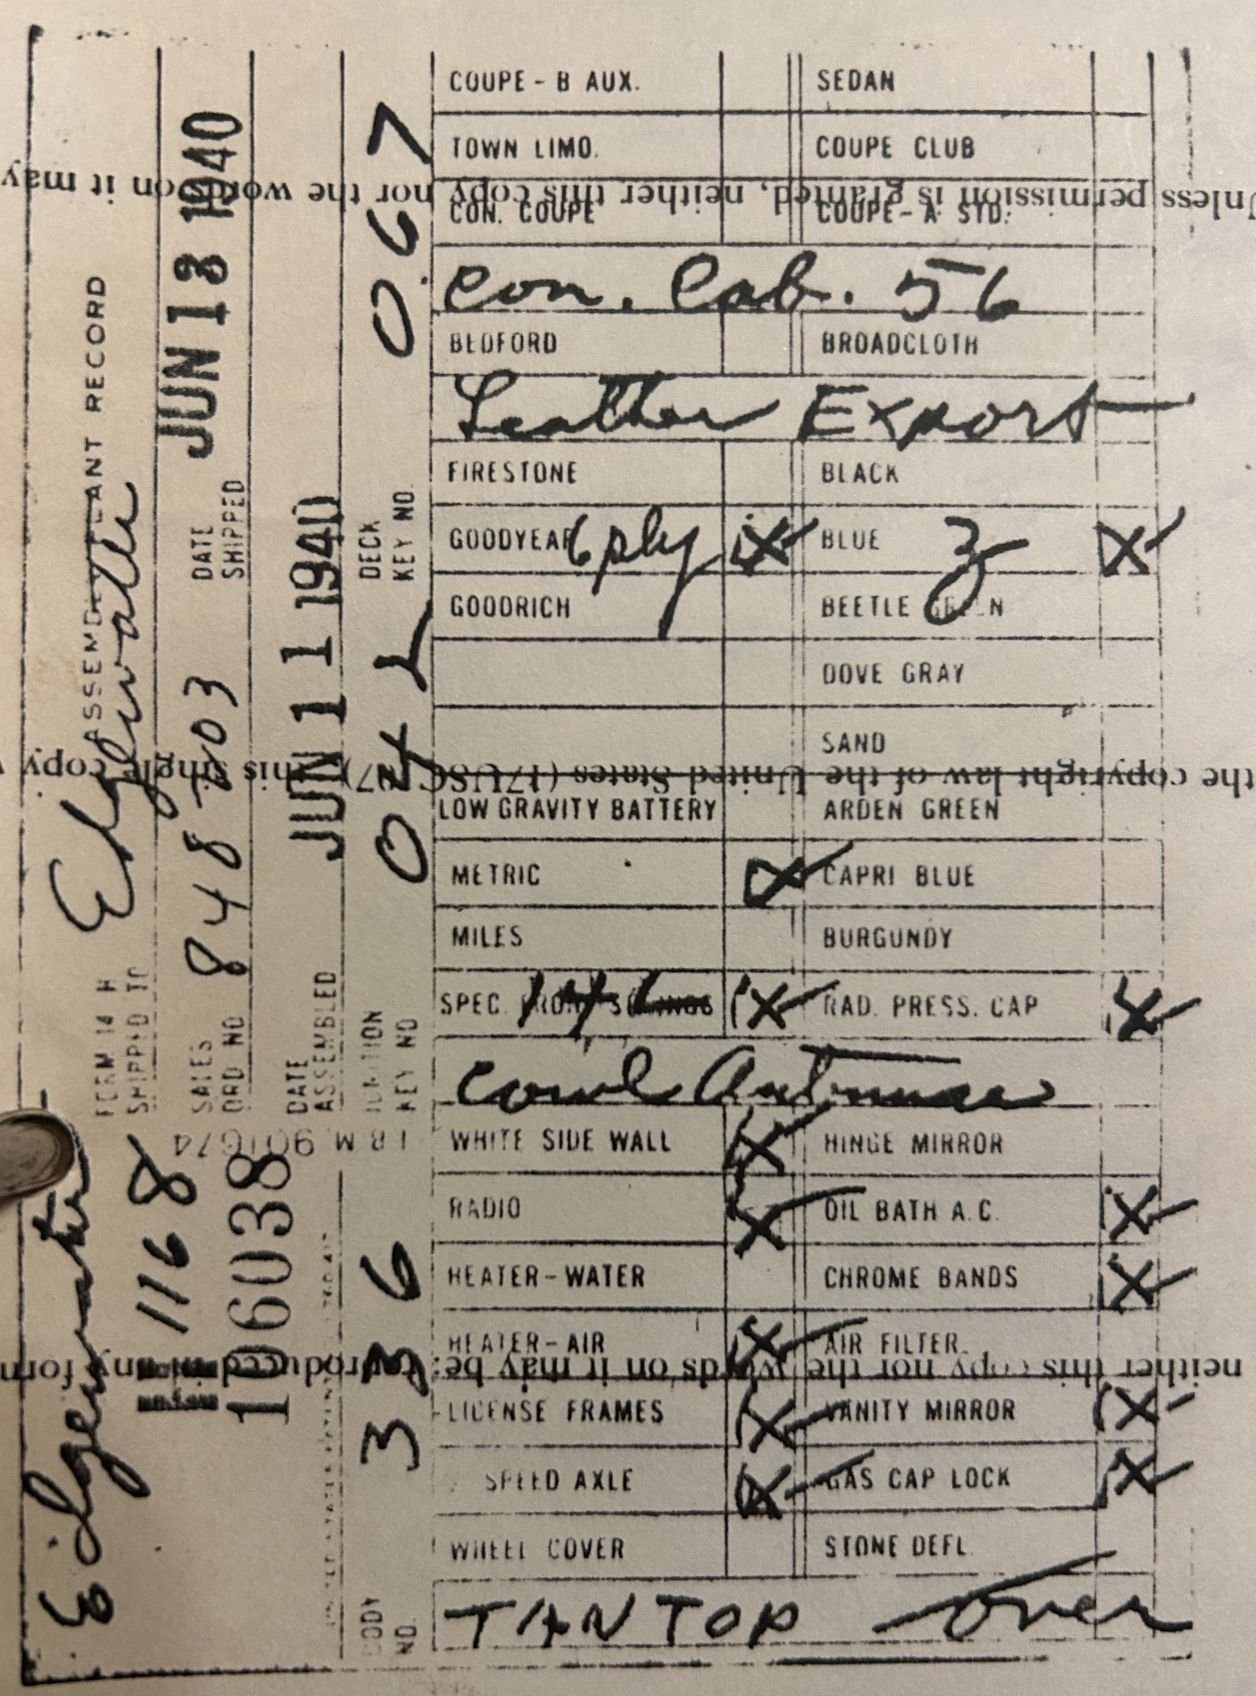 ASSEMBLY PLANT RECORD
FORM 14 H
SHIPPED TO
SALES ORD NO 848 203
DATE SHIPPED JUN 13 1940
DATE ASSEMBLED JUN 11 1940
IGNITION KEY NO
DECK KEY NO. 067
I.B.M. 901674
1168
106038
BODY NO. 336
COUPE - B AUX. SEDAN
TOWN LIMO. COUPE CLUB
Unless permission is granted, neither this copy nor the words on it may
CON. COUPE COUPE - A STD.
Con. Cab. 56
BEDFORD BROADCLOTH
Leather Export
FIRESTONE BLACK
GOODYEAR 6 ply X BLUE X
GOODRICH BEETLE GREEN
DOVE GRAY
SAND
the copyright law of the United States (17USC 97) This single copy
LOW GRAVITY BATTERY ARDEN GREEN
METRIC X CAPRI BLUE
MILES BURGUNDY
SPEC. FRONT SPRINGS X RAD. PRESS. CAP X
Cowl Antennae
WHITE SIDE WALL X HINGE MIRROR
RADIO X OIL BATH A.C. X
HEATER-WATER CHROME BANDS X
HEATER-AIR X AIR FILTER
neither this copy nor the words on it may be reproduced in any form
LICENSE FRAMES X VANITY MIRROR X
SPEED AXLE X GAS CAP LOCK X
WHEEL COVER STONE DEFL.
TAN TOP over